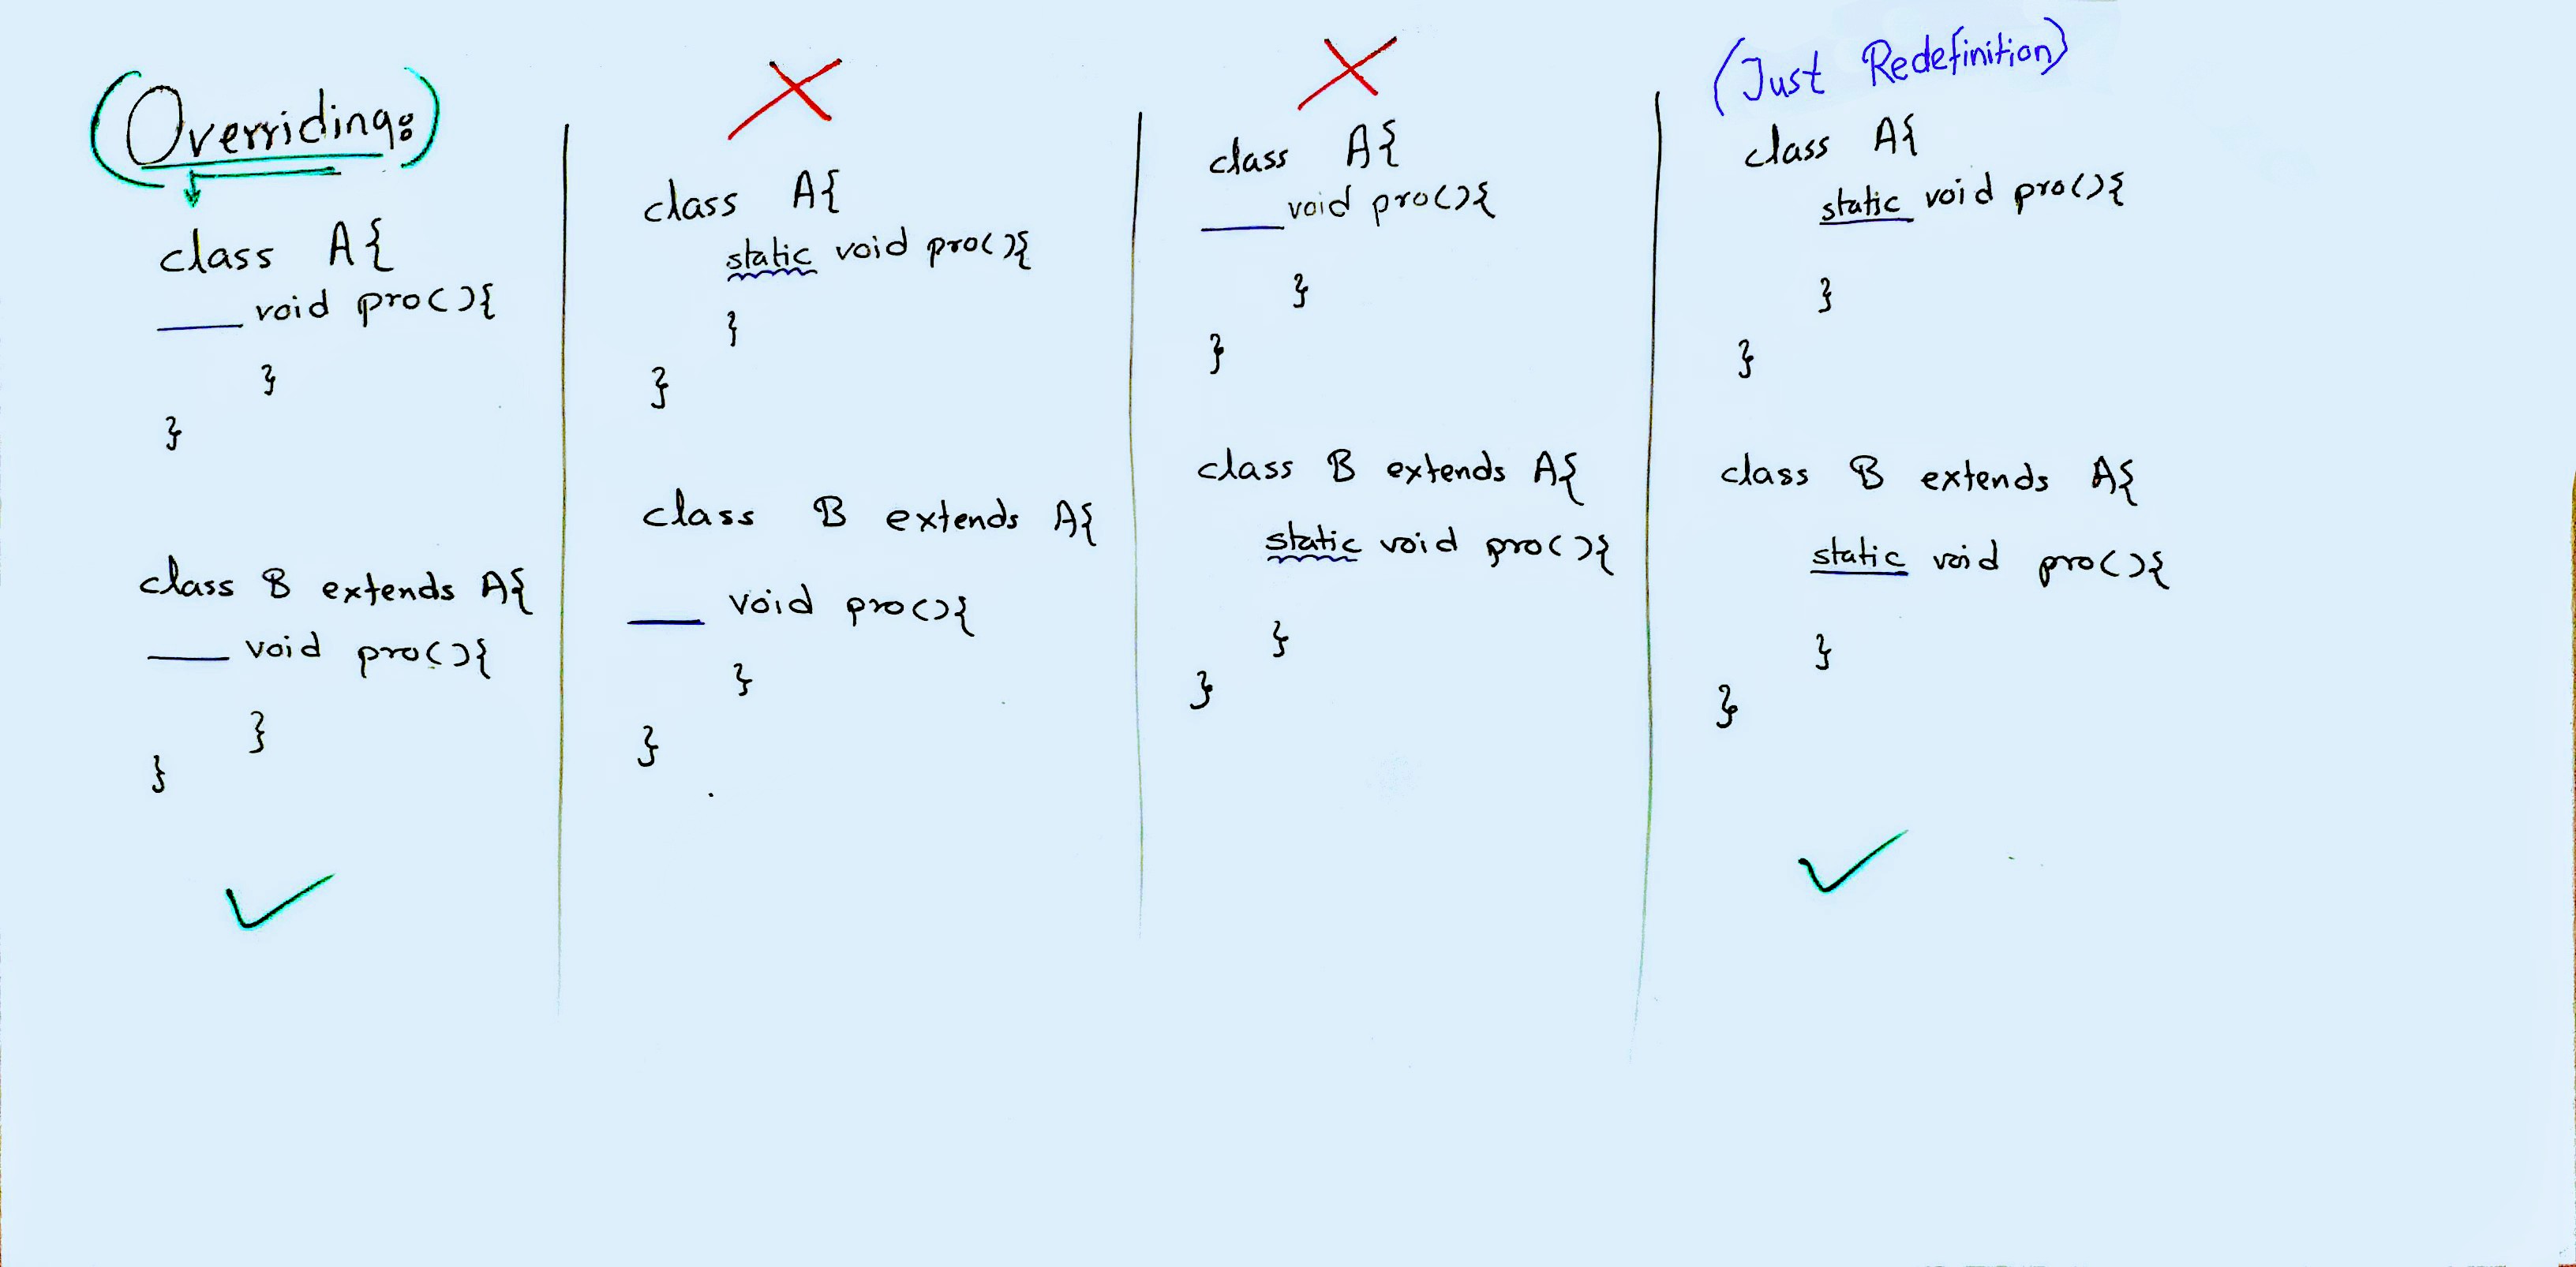 (Overriding:)
class A{
___ void pro(){
}
}
class B extends A{
___ void pro(){
}
}
class A{
static void pro(){
}
}
class B extends A{
___ void pro(){
}
}
class A{
___ void pro(){
}
}
class B extends A{
static void pro(){
}
}
(Just Redefinition)
class A{
static void pro(){
}
}
class B extends A{
static void pro(){
}
}